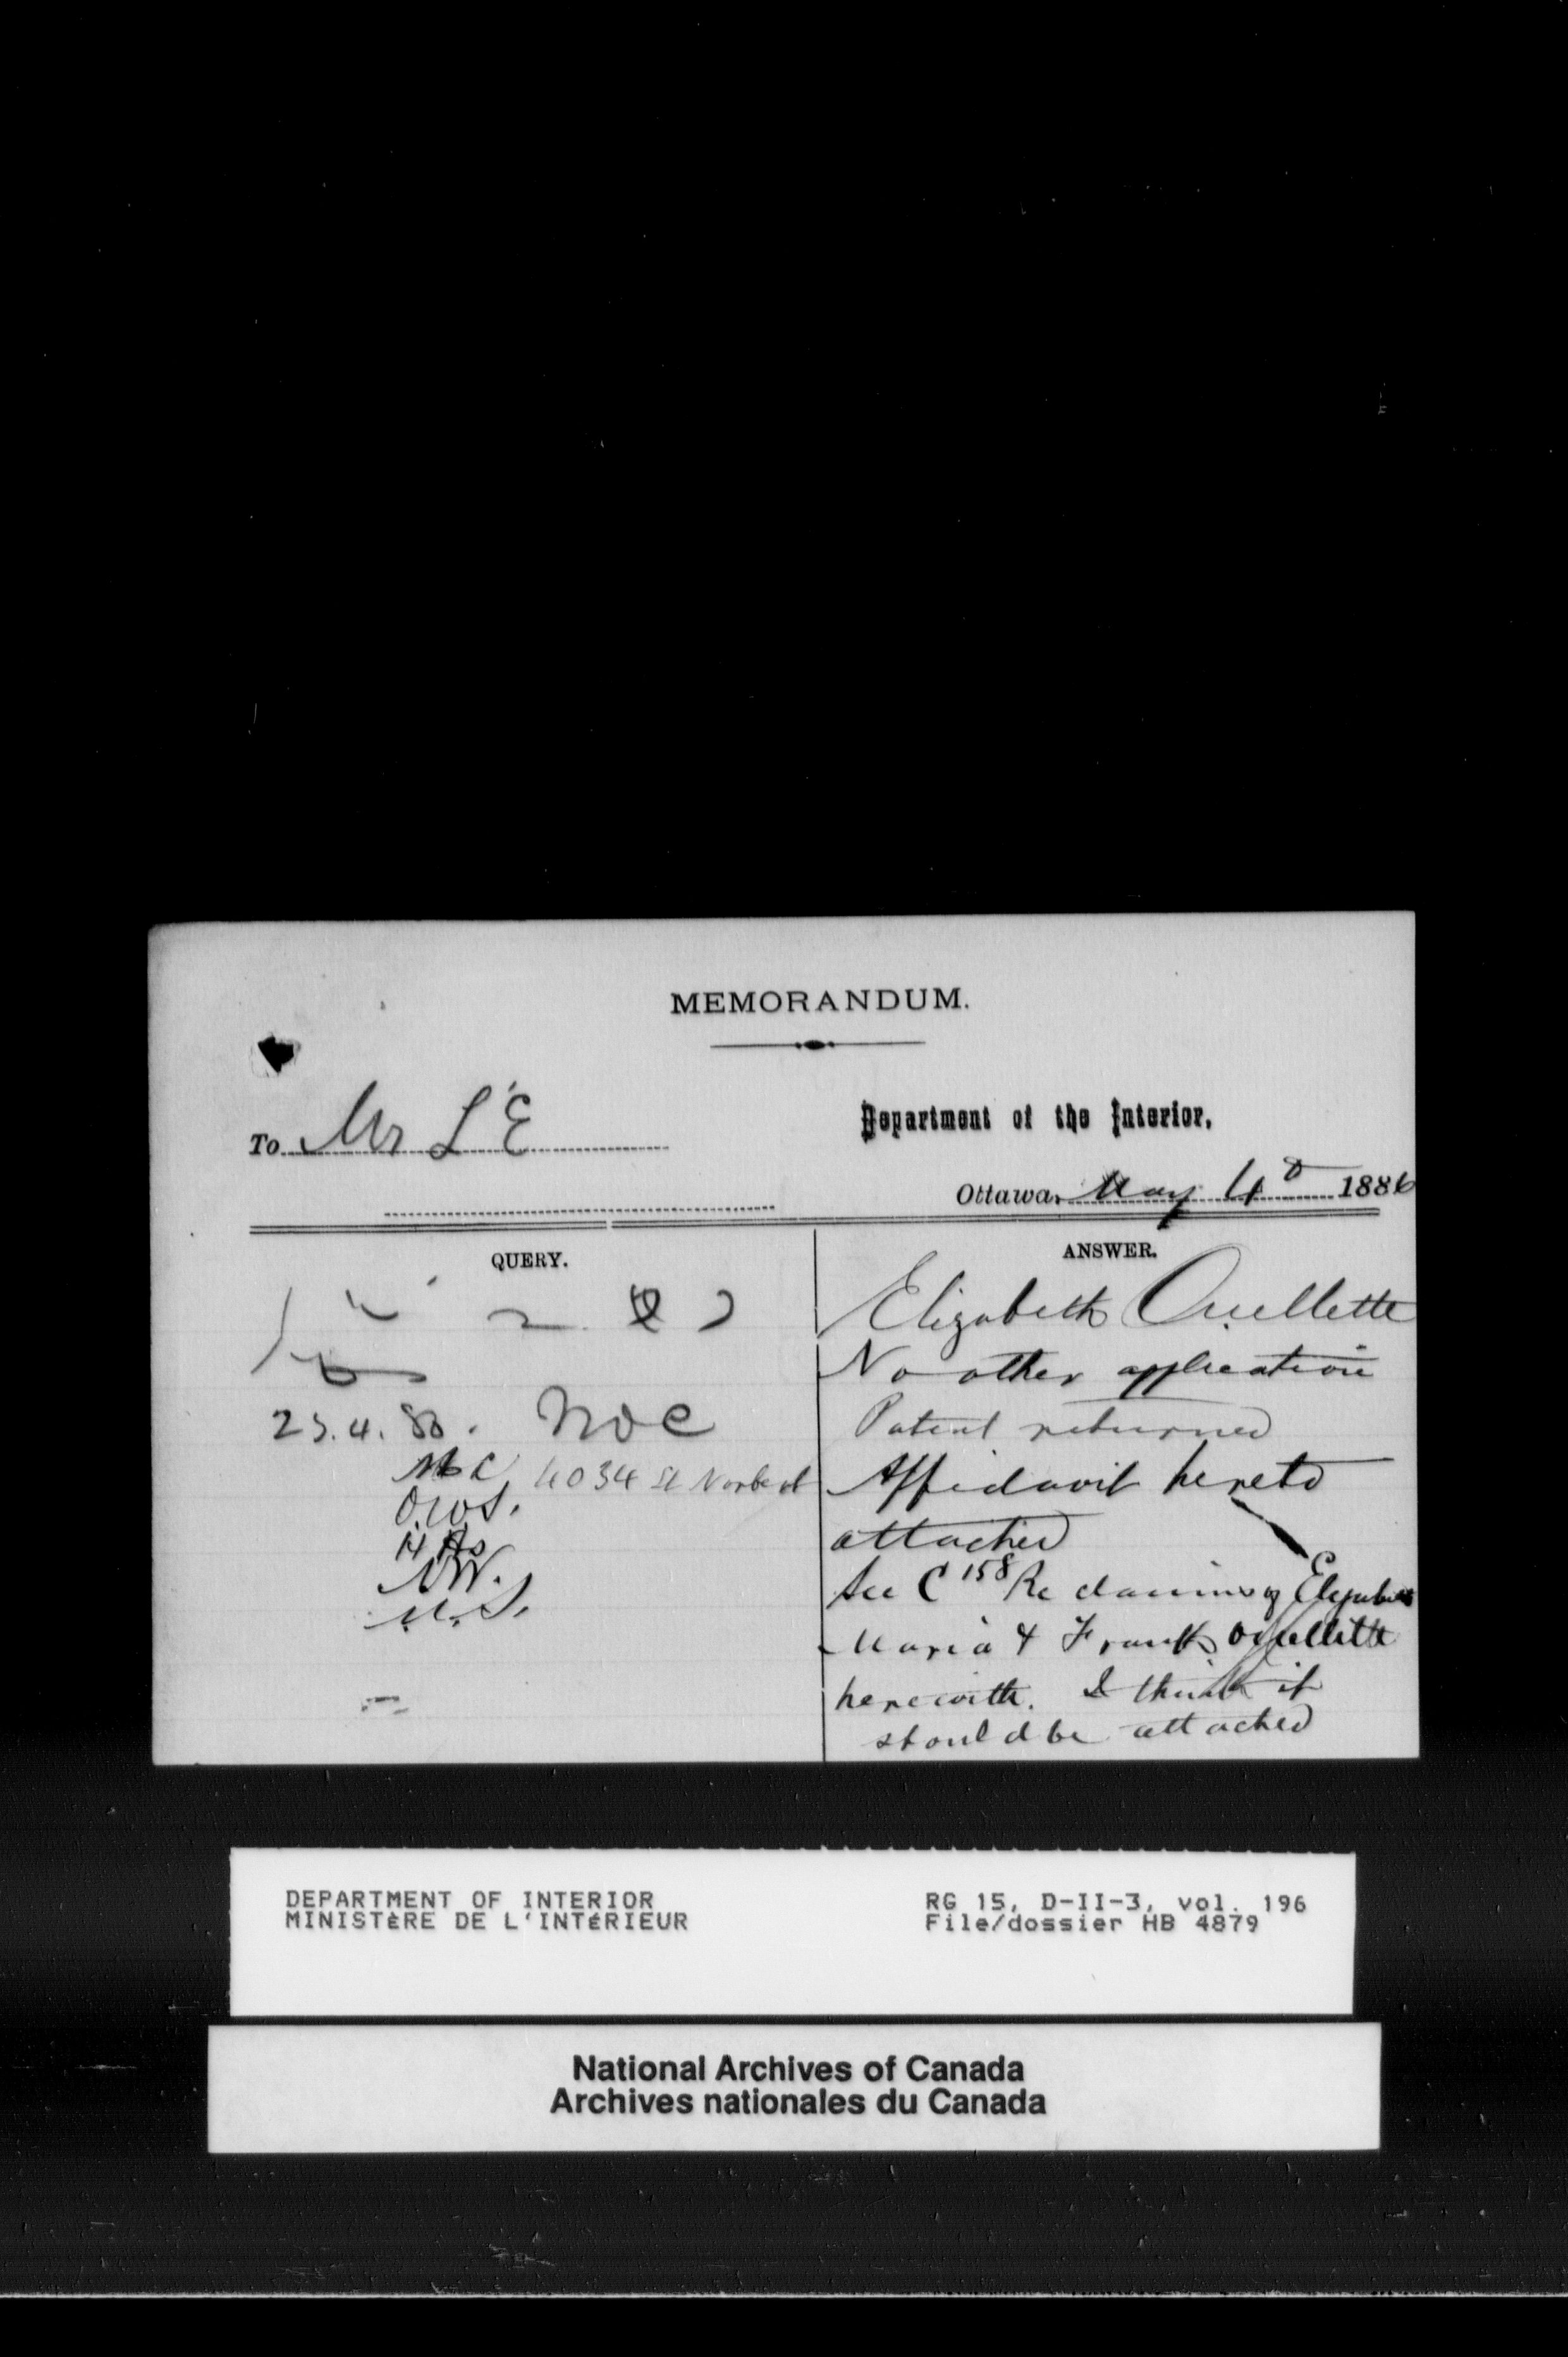 MEMORANDUM.
To Mr L'E
Department of the Interior.
Ottawa, May 4 1886
QUERY.
23.4.86.
4034 St Norbert
O.W.S.
ANSWER.
Elizabeth Ouellette
No other application
Patent returned
Affidavit hereto
attached
See C 158 Re claims of
Maria & Frank Ouellette
herewith. I think it
should be attached
DEPARTMENT OF INTERIOR
MINISTèRE DE L'INTéRIEUR
RG 15, D-II-3, vol. 196
File/dossier HB 4879
National Archives of Canada
Archives nationales du Canada